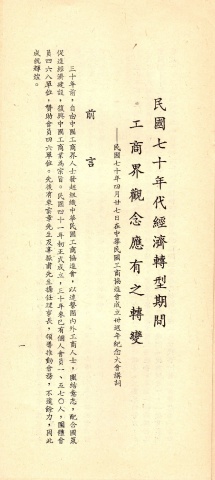 民國七十年代經濟轉型期間
工商界觀念應有之轉變
——民國七十年四月廿七日在中華民國工商協進會成立卅週年紀念大會講詞
前言
三十年前，自由中國工商界人士發起組織中華民國工商協進會，以達聲國內外工商人士，團結意志，配合國策
促進經濟建設，復興中國工商業為宗旨。民國四十一年初正式成立，三十年來已有個人會員一、五七〇人，團體會
員四六八單位，贊助會員四六單位。先後有束雲章先生及辜振甫先生擔任理事長，領導推動會務，不遺餘力，因此
成就輝煌。